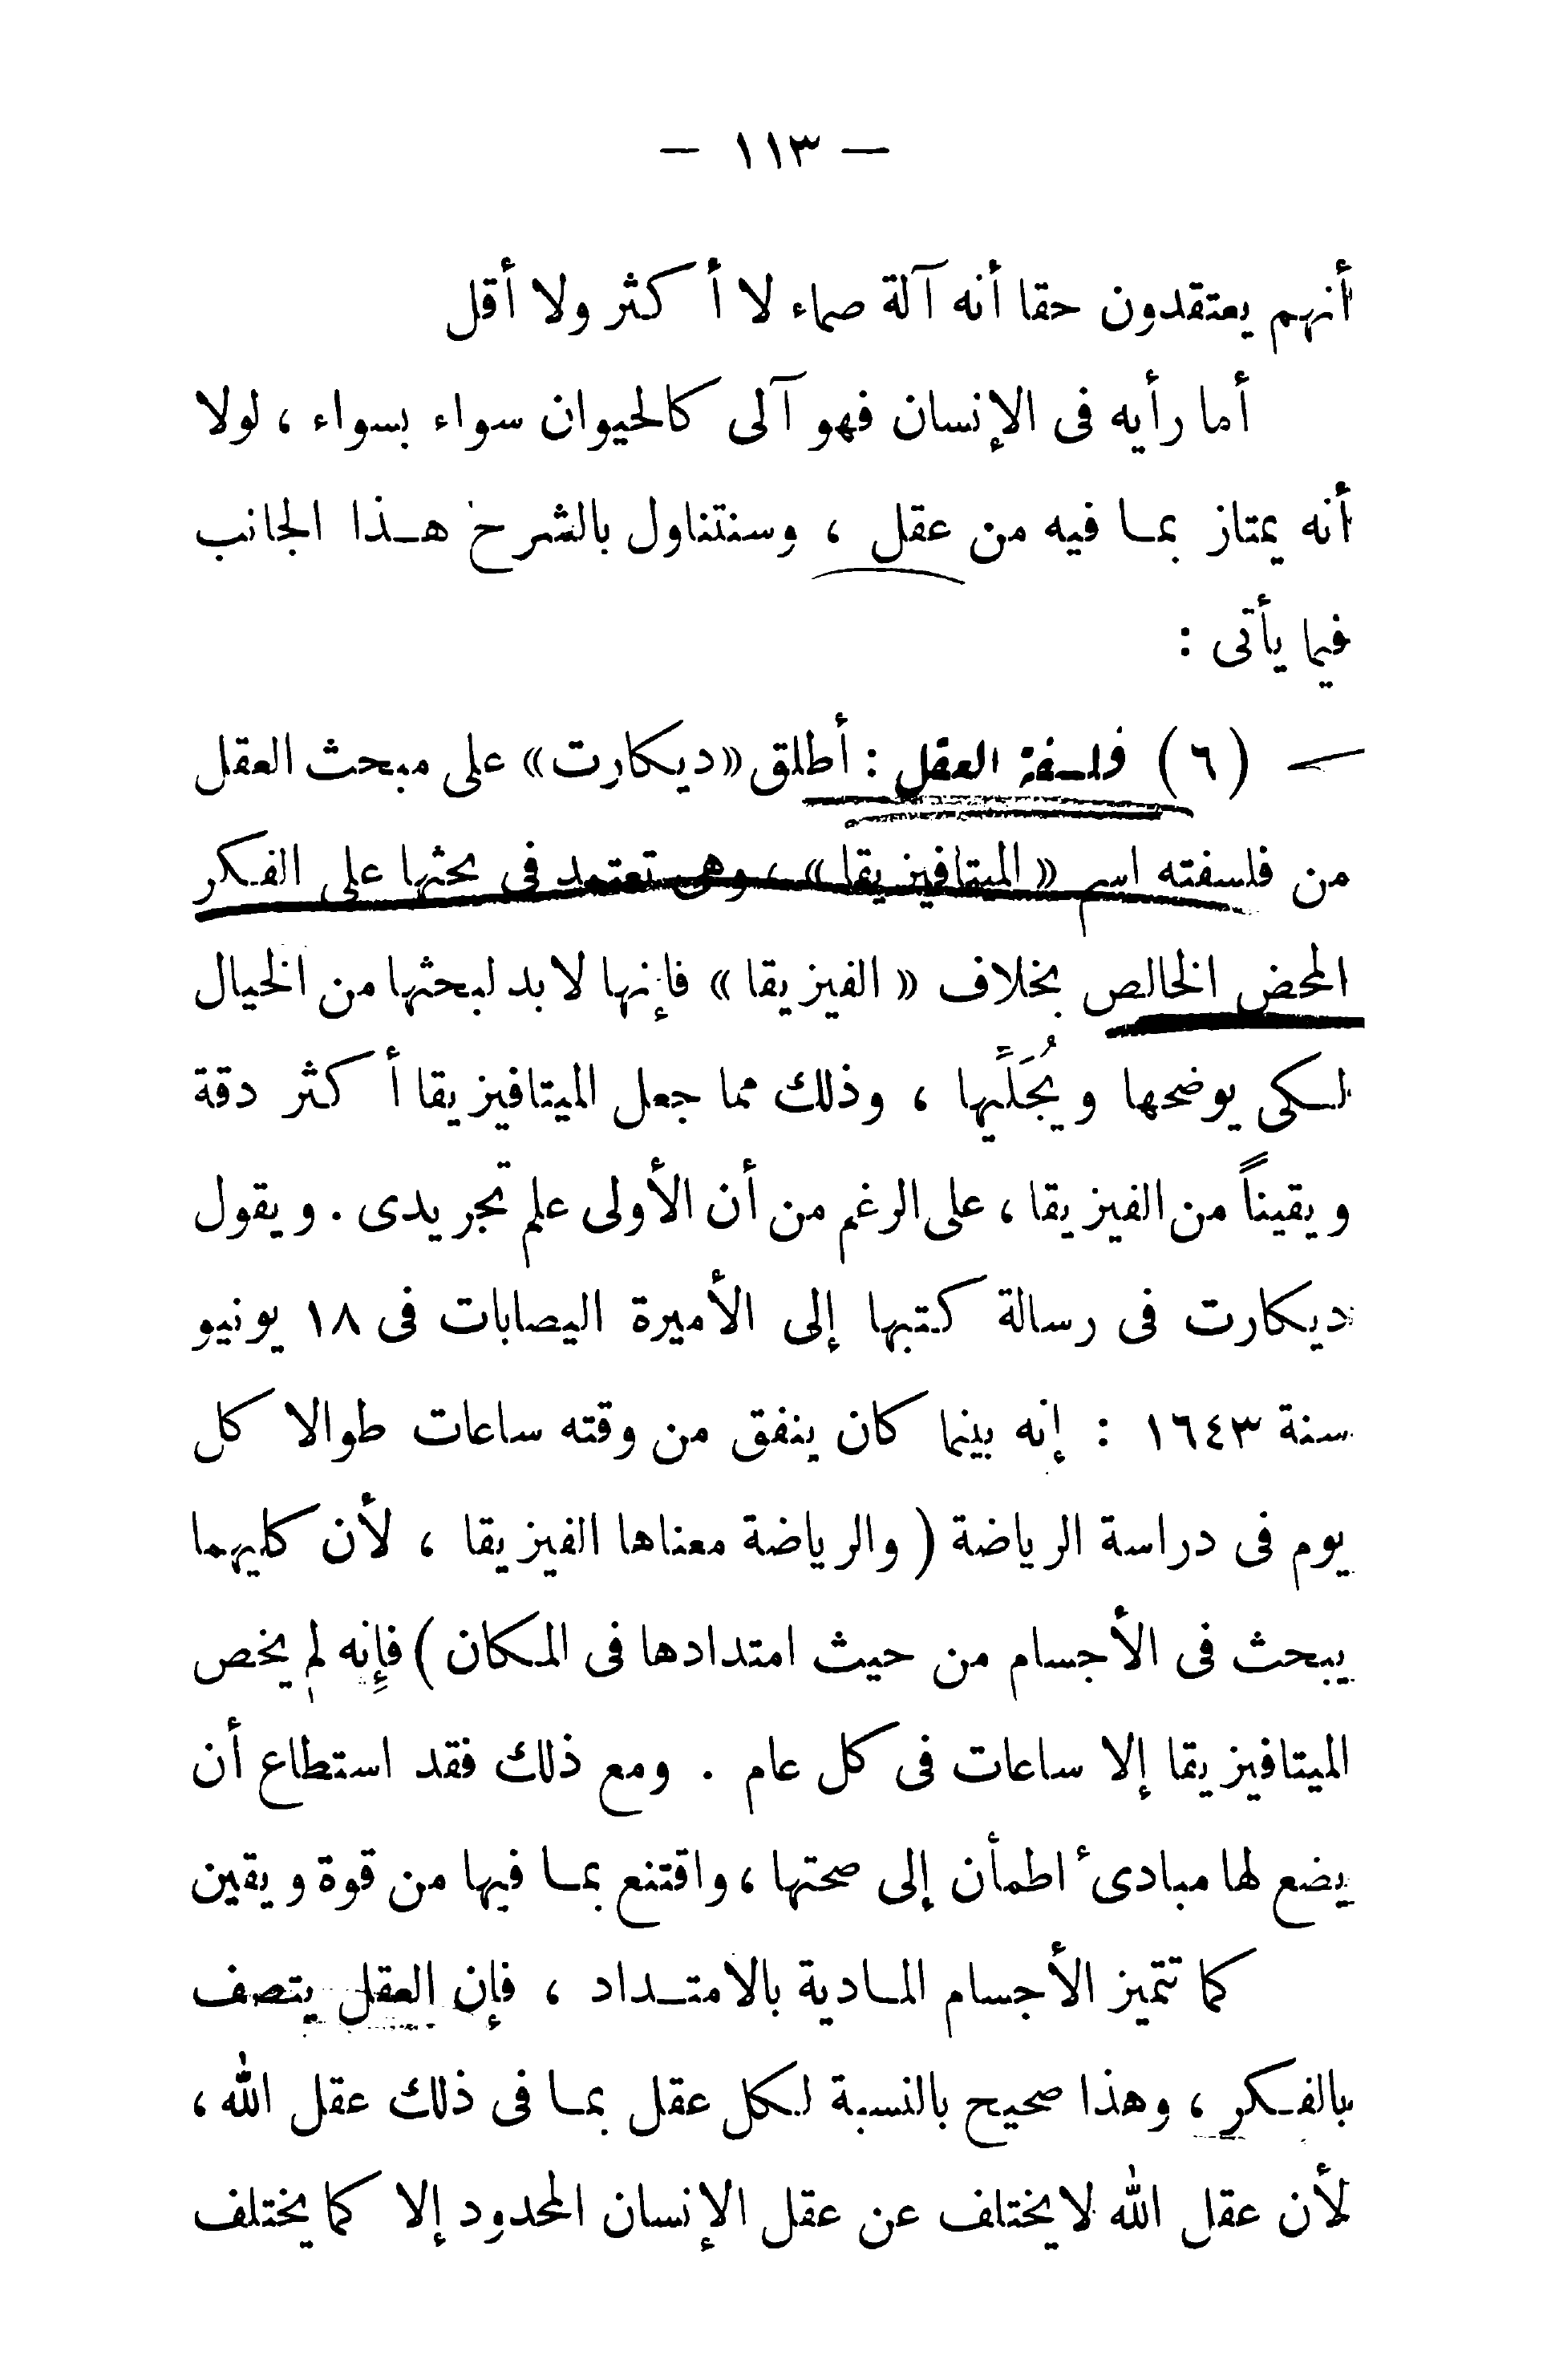 — ١١٣ —
أنهم يعتقدون حقا أنه آلة صماء لا أكثر ولا أقل
أما رأيه فى الإنسان فهو آلى كالحيوان سواء بسواء ، لولا
أنه يمتاز بما فيه من عقل ، وسنتناول بالشرح هذا الجانب
فيما يأتى :
(٦) فلسفة العقل : أطلق «ديكارت» على مبحث العقل
من فلسفته اسم «الميتافيزيقا» ، وهى تعتمد فى بحثها على الفكر
المحض الخالص بخلاف «الفيزيقا» فإنها لابد لبحثها من الخيال
لكى يوضحها ويُجَلِّيها ، وذلك مما جعل الميتافيزيقا أكثر دقة
ويقيناً من الفيزيقا ، على الرغم من أن الأولى علم تجريدى . ويقول
ديكارت فى رسالة كتبها إلى الأميرة اليصابات فى ١٨ يونيو
سنة ١٦٤٣ : إنه بينما كان ينفق من وقته ساعات طوالا كل
يوم فى دراسة الرياضة ( والرياضة معناها الفيزيقا ، لأن كليهما
يبحث فى الأجسام من حيث امتدادها فى المكان ) فإنه لم يخص
الميتافيزيقا إلا ساعات فى كل عام . ومع ذلك فقد استطاع أن
يضع لها مبادئ اطمأن إلى صحتها ، واقتنع بما فيها من قوة ويقين
كما تتميز الأجسام المادية بالامتداد ، فإن العقل يتصف
بالفكر ، وهذا صحيح بالنسبة لكل عقل بما فى ذلك عقل الله ،
لأن عقل الله لا يختلف عن عقل الإنسان المحدود إلا كما يختلف